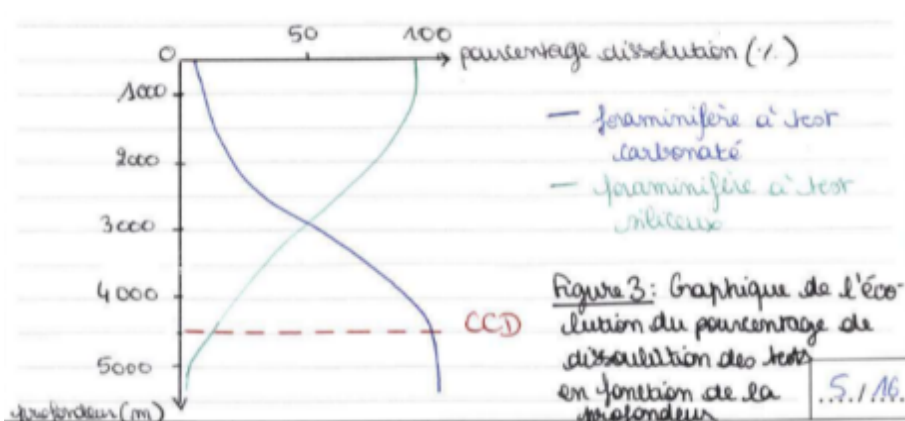 0 50 100
pourcentage dissolution (%)
1000
2000
3000
4000
5000
profondeur (m)
CCD
— foraminifère à test
carbonaté
— foraminifère à test
siliceux
Figure 3 : Graphique de l'évo-
lution du pourcentage de
dissoulution des tests
en fonction de la
profondeur
5 / 16